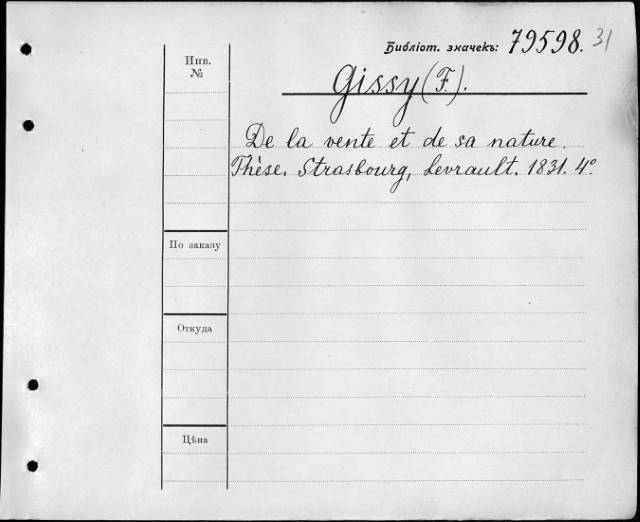 Библіот. значекъ: 79598. 31
Инв.
№
Gissy (F.).
De la vente et de sa nature.
Thèse. Strasbourg, Levrault. 1831. 4º.
По заказу
Откуда
Цѣна